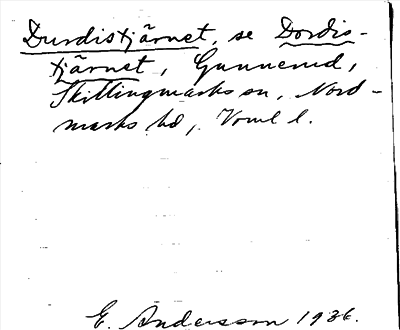 Durdistjärnet, se Dordis-
tjärnet, Gunnerud,
Skillingmarks sn, Nord-
marks hd, Vrml l.
E. Andersson 1936.